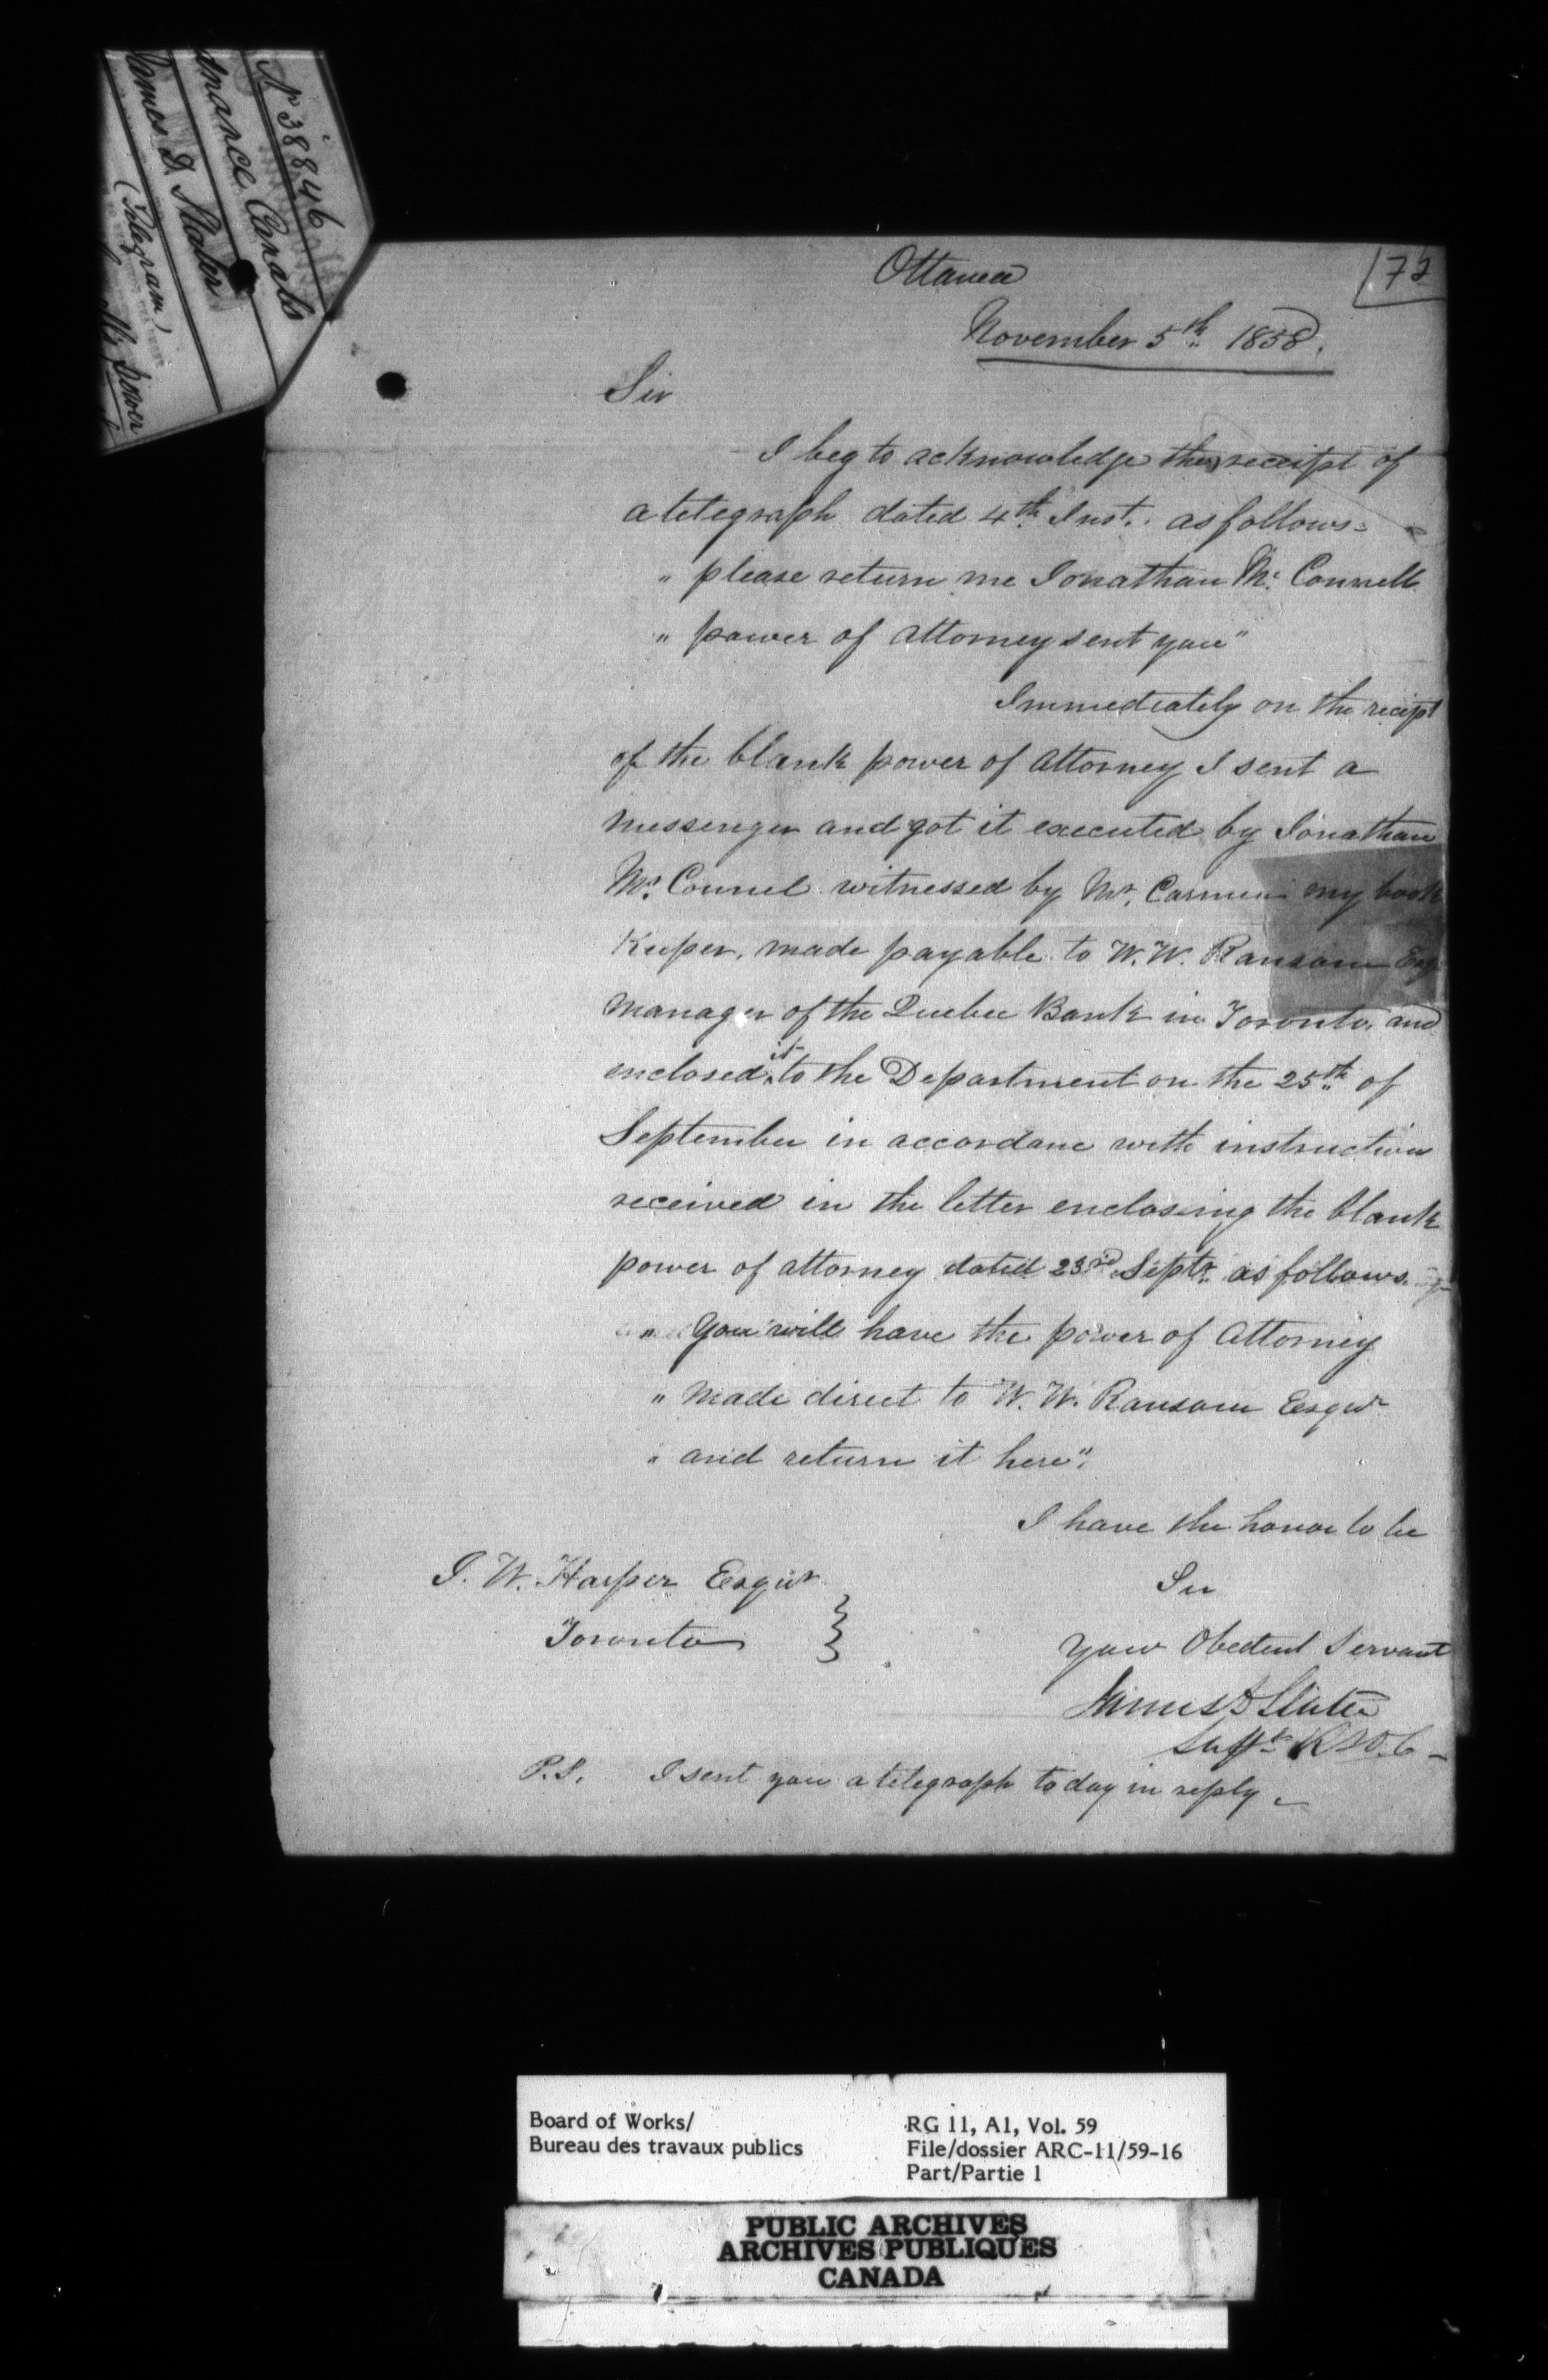 No 38846
Canals
James D. Slater
(Telegram)
72
Ottawa
November 5th 1858.
Sir
I beg to acknowledge the receipt of
a telegraph dated 4th Inst. as follows
" please return me Jonathan Mc Connell
" power of attorney sent you"
Immediately on the recipt
of the blank power of attorney I sent a
messenger and got it executed by Jonathan
Mc Connel witnessed by Mr. my book
Keeper, made payable to W. W. Ransom Esq
manager of the Quebec Bank in Toronto, and
enclosed it to the Department on the 25th of
September in accordance with instruction
received in the letter enclosing the blank
power of attorney dated 23rd Septr. as follows
" You will have the power of Attorney
" made direct to W. W. Ransom Esqur
" and return it here".
I have the honor to be
Sir
Your Obedient Servant
James D Slater
Supt. R.W.C
J. W. Harper Esqur
Toronto
P.S. I sent you a telegraph today in reply
Board of Works/
Bureau des travaux publics
RG 11, A1, Vol. 59
File/dossier ARC-11/59-16
Part/Partie 1
PUBLIC ARCHIVES
ARCHIVES PUBLIQUES
CANADA